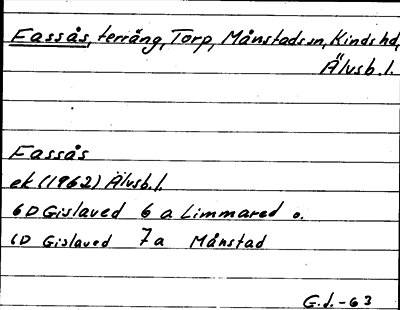 Fassås, terräng, Torp, Månstads sn, Kinds hd,
Älvsb. l.
Fassås
ek (1962) Älvsb. l.
6D Gislaved 6 a Limmared o.
6D Gislaved 7a Månstad
G.J.-63